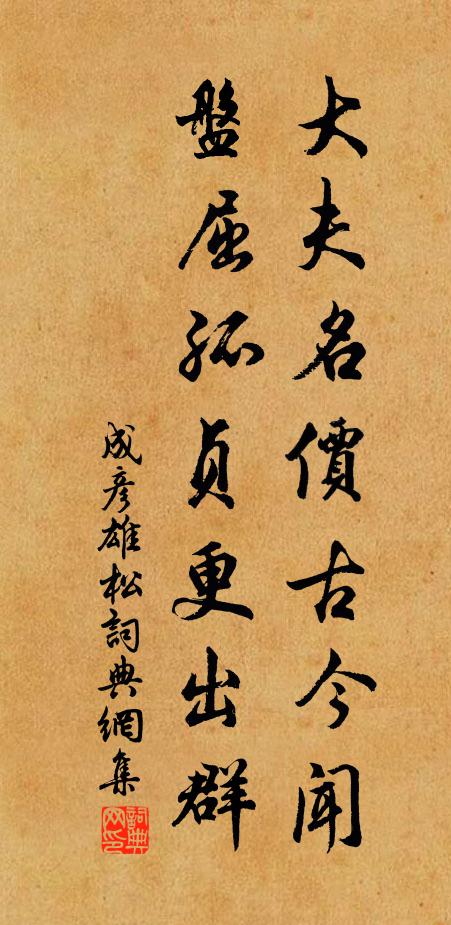 大夫名價古今聞
盤屈孤貞更出群
成彥雄松詞典網集
詞典网印